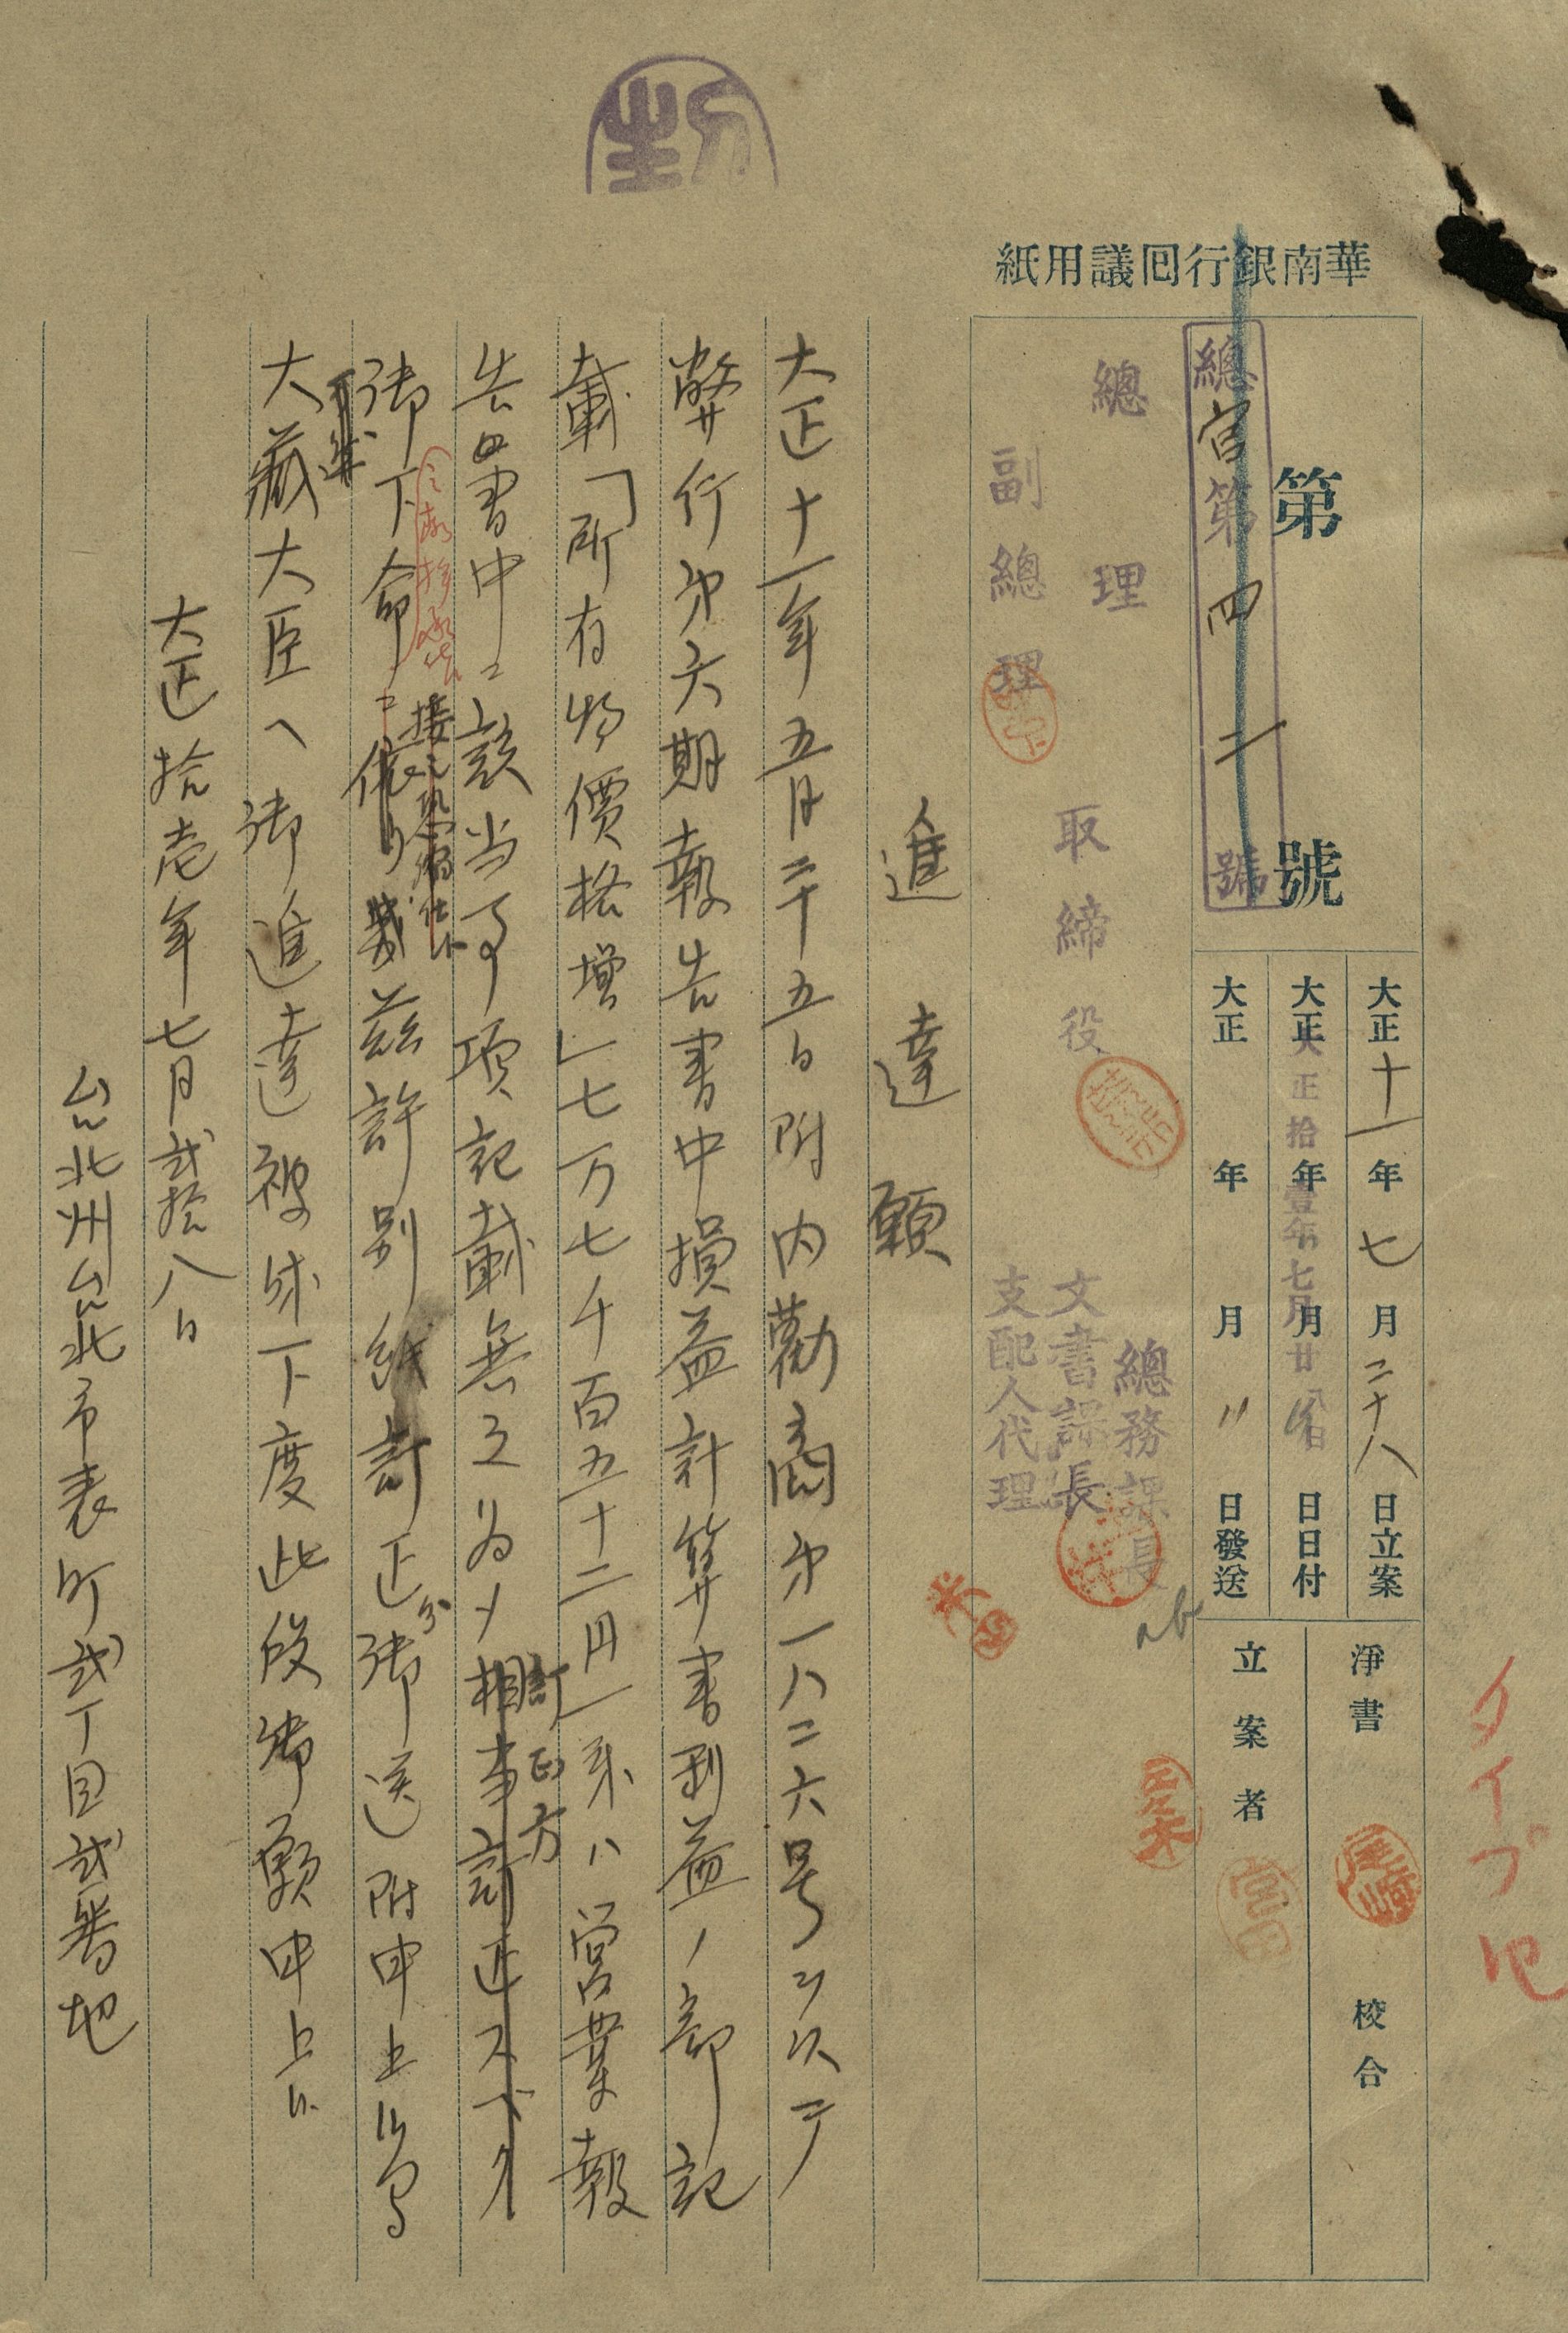 華南銀行囘議用紙
第 號
總官第四二號
大正十一年七月二十八日立案
大正 年 月 日日付
大正拾壹年七月廿八日
大正 年 月 〃 日發送
淨書 校合
立案者
總理
副總理
取締役
總務課長
文書課長
支配人代理
タイプ
進達願
大正十一年五月二十五日附内勸商第一八二六号ヲ以テ
弊行第六期報告書中損益計算書利益ノ部記
載「所有物價格増」七万七千百五十二円一釆ハ営業報
告書中ニ該当事項記載無之為メ相事訂正スベク
訂正方
御下命ニ依リ茲許別紙訂正分御送附申上候間
接シ恐縮仕候
大藏大臣ヘ御進達被成下度此段御願申上候
大正拾壱年七月弐拾八日
台北州台北市表町弐丁目弐番地